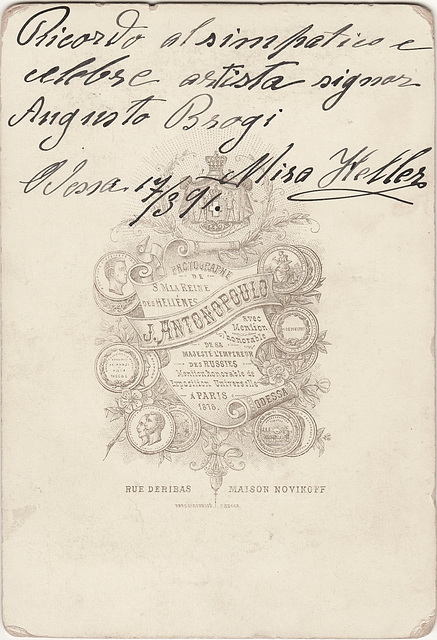 Ricordo al simpatico e
celebre artista signor
Augusto Brogi
Odessa 17/3 91. Mira Heller
PHOTOGRAPHE
DE
S.M. LA REINE
DES HELLÈNES
J. ANTONOPOULO
avec
Mention
honorable
DE SA
MAJESTÉ L'EMPEREUR
DES RUSSIES
Mention honorable de
Exposition Universelle
A PARIS
1878.
ODESSA
RUE DERIBAS MAISON NOVIKOFF